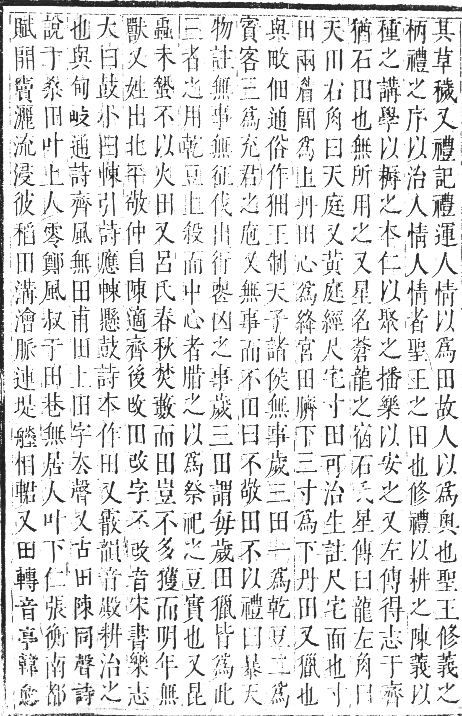 其草穢又禮記禮運人情以爲田故人以爲奥也聖王修義之
柄禮之序以治人情人情者聖王之田也修禮以耕之陳義以
種之講學以耨之本仁以聚之播樂以安之又左傳得志于齊
猶石田也無所用之又星名蒼龍之宿石氏星傳曰龍左角曰
天田右角曰天庭又黄庭經尺宅寸田可治生註尺宅面也寸
田兩眉間爲上丹田心爲絳宮田臍下三寸爲下丹田又獵也
與畋佃通俗作𤝗王制天子諸侯無事歲三田一爲乾豆二爲
賓客三爲充君之庖又無事而不田曰不敬田不以禮曰暴天
物註無事無征伐出行喪凶之事歲三田謂每歲田獵皆爲此
三者之用乾豆上殺而中心者腊之以爲祭祀之豆實也又昆
蟲未蟄不以火田又呂氏春秋焚藪而田豈不多獲而明年無
獸又姓出北平敬仲自陳適齊後改田攺字不攺音宋書樂志
大曰鼓小曰朄引詩應朄懸鼓詩本作田又霰韻音殿耕治之
也與甸岐通詩齊風無田甫田上田字去聲又古田陳同聲詩
說于桑田叶上人零鄭風叔于田巷無居人叶下仁張衡南都
賦開竇灑流浸彼稻田溝澮脈連堤塍相輑又田轉音亭韓愈